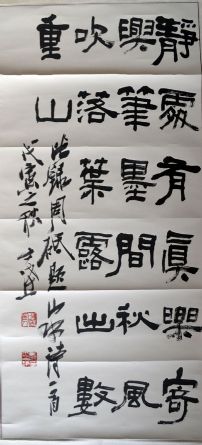 靜處有真樂寄
興筆墨間秋風
吹落葉露出數
重山
此錄周砥題山水詩一首